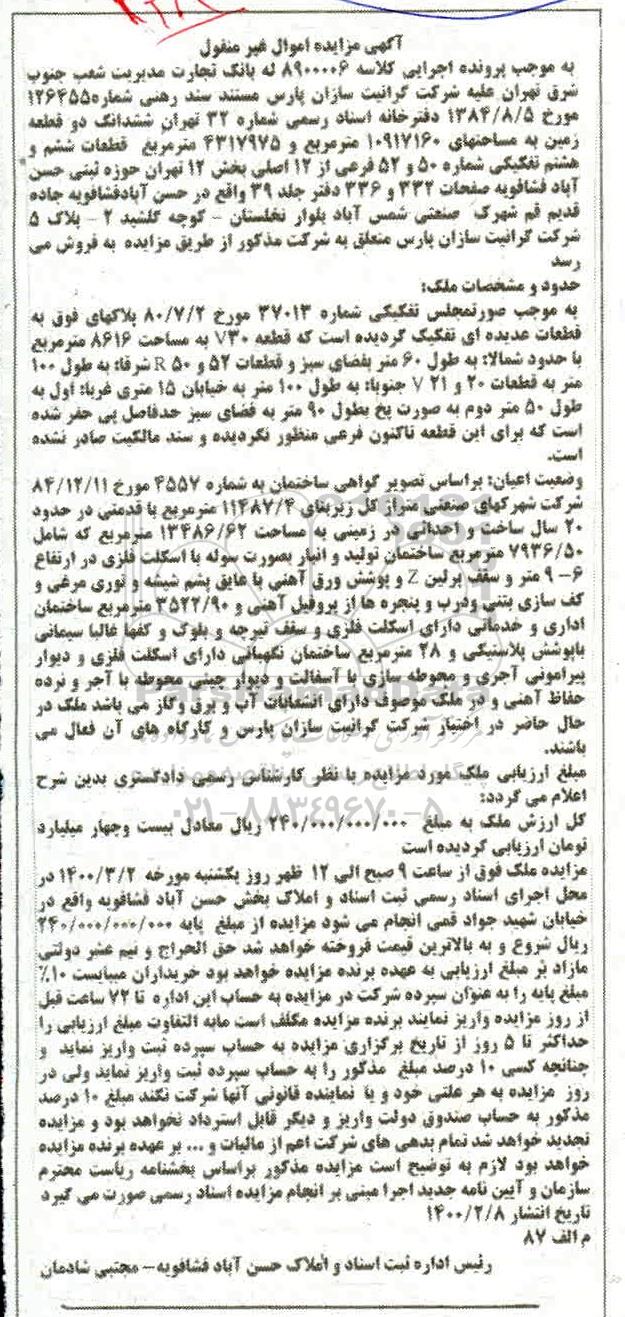 آگهی مزایده اموال غیر منقول
به موجب پرونده اجرایی کلاسه ۸۹۰۰۰۰۶ له بانک تجارت مدیریت شعب جنوب
شرق تهران علیه شرکت گرانیت سازان پارس مستند سند رهنی شماره۱۲۶۴۵۵
مورخ ۱۳۸۴/۸/۵ دفترخانه اسناد رسمی شماره ۳۲ تهران ششدانگ دو قطعه
زمین به مساحتهای ۱۰۹۱۷۱۶۰ مترمربع و ۴۳۱۷۹۷۵ مترمربع قطعات ششم و
هشتم تفکیکی شماره ۵۰ و ۵۲ فرعی از ۱۲ اصلی بخش ۱۲ تهران حوزه ثبتی حسن
آباد فشافویه صفحات ۳۳۲ و ۳۳۶ دفتر جلد ۳۹ واقع در حسن آبادفشافویه جاده
قدیم قم شهرک صنعتی شمس آباد بلوار نخلستان – کوچه گلشید ۲ – پلاک ۵
شرکت گرانیت سازان پارس متعلق به شرکت مذکور از طریق مزایده به فروش می
رسد
حدود و مشخصات ملک:
به موجب صورتمجلس تفکیکی شماره ۳۷۰۱۳ مورخ ۸۰/۷/۲ پلاکهای فوق به
قطعات عدیده ای تفکیک گردیده است که قطعه V۳۰ به مساحت ۸۶۱۶ مترمربع
با حدود شمالا: به طول ۶۰ متر بفضای سبز و قطعات ۵۲ و ۵۰ R شرقا: به طول ۱۰۰
متر به قطعات ۲۰ و ۲۱ V جنوبا: به طول ۱۰۰ متر به خیابان ۱۵ متری غربا: اول به
طول ۵۰ متر دوم به صورت پخ بطول ۹۰ متر به فضای سبز حدفاصل پی حفر شده
است که برای این قطعه تاکنون فرعی منظور نگردیده و سند مالکیت صادر نشده
است.
وضعیت اعیان: براساس تصویر گواهی ساختمان به شماره ۴۵۵۷ مورخ ۸۴/۱۲/۱۱
شرکت شهرکهای صنعتی متراژ کل زیربنای ۱۱۴۸۷/۴ مترمربع با قدمتی در حدود
۲۰ سال ساخت و احداثی در زمینی به مساحت ۱۳۴۸۶/۶۲ مترمربع که شامل
۷۹۳۶/۵۰ مترمربع ساختمان تولید و انبار بصورت سوله با اسکلت فلزی در ارتفاع
۶– ۹ متر و سقف پرلین Z و پوشش ورق آهنی با عایق پشم شیشه و توری مرغی و
کف سازی بتنی ودرب و پنجره ها از پروفیل آهنی و ۳۵۲۲/۹۰ مترمربع ساختمان
اداری و خدماتی دارای اسکلت فلزی و سقف تیرچه و بلوک و کفها غالبا سیمانی
باپوشش پلاستیکی و ۲۸ مترمربع ساختمان نگهبانی دارای اسکلت فلزی و دیوار
پیرامونی آجری و محوطه سازی با آسفالت و دیوار چینی محوطه با آجر و نرده
حفاظ آهنی و در ملک موصوف دارای انشعابات آب و برق وگاز می باشد ملک در
حال حاضر در اختیار شرکت گرانیت سازان پارس و کارگاه های آن فعال می
باشند.
مبلغ ارزیابی ملک مورد مزایده با نظر کارشناس رسمی دادگستری بدین شرح
اعلام می گردد:
کل ارزش ملک به مبلغ ۲۴۰/۰۰۰/۰۰۰/۰۰۰ ریال معادل بیست وچهار میلیارد
تومان ارزیابی گردیده است
مزایده ملک فوق از ساعت ۹ صبح الی ۱۲ ظهر روز یکشنبه مورخه ۱۴۰۰/۳/۲ در
محل اجرای اسناد رسمی ثبت اسناد و املاک بخش حسن آباد فشافویه واقع در
خیابان شهید جواد قمی انجام می شود مزایده از مبلغ پایه ۲۴۰/۰۰۰/۰۰۰/۰۰۰
ریال شروع و به بالاترین قیمت فروخته خواهد شد حق الحراج و نیم عشر دولتی
مازاد بر مبلغ ارزیابی به عهده برنده مزایده خواهد بود خریداران میبایست ۱۰٪
مبلغ پایه را به عنوان سپرده شرکت در مزایده به حساب این اداره تا ۷۲ ساعت قبل
از روز مزایده واریز نمایند برنده مزایده مکلف است مابه التفاوت مبلغ ارزیابی را
حداکثر تا ۵ روز از تاریخ برگزاری مزایده به حساب سپرده ثبت واریز نماید و
چنانچه کسی ۱۰ درصد مبلغ مذکور را به حساب سپرده ثبت واریز نماید ولی در
روز مزایده به هر علتی خود و یا نماینده قانونی آنها شرکت نکند مبلغ ۱۰ درصد
مذکور به حساب صندوق دولت واریز و دیگر قابل استرداد نخواهد بود و مزایده
تجدید خواهد شد تمام بدهی های شرکت اعم از مالیات و ... بر عهده برنده مزایده
خواهد بود لازم به توضیح است مزایده مذکور براساس بخشنامه ریاست محترم
سازمان و آیین نامه جدید اجرا مبنی بر انجام مزایده اسناد رسمی صورت می گیرد
تاریخ انتشار ۱۴۰۰/۲/۸
م الف ۸۷
رئیس اداره ثبت اسناد و املاک حسن آباد فشافویه– مجتبی شادمان
ParsNamadData
۰۲۱–۸۸۳۴۹۶۷۰–۵